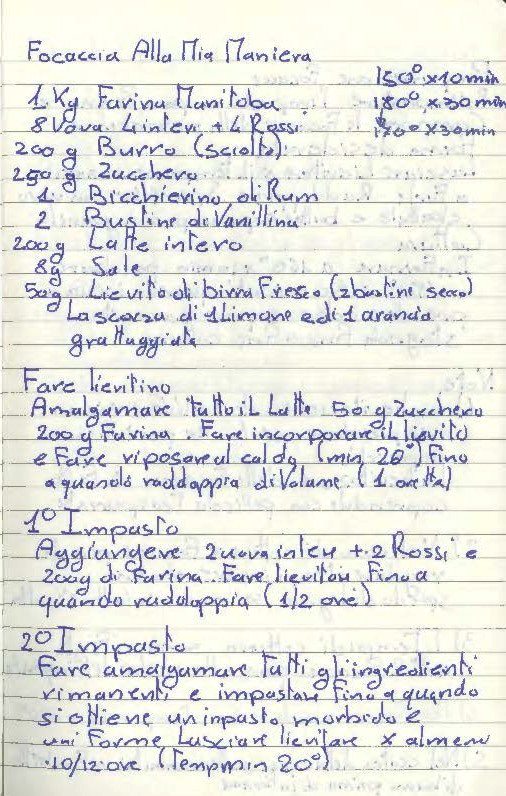 Focaccia Alla Mia Maniera
150° x 10 min
1 Kg Farina Manitoba 180° x 30 min
8 Uova 4 interi + 4 Rossi 170° x 30 min
200 g Burro (sciolto)
250 g Zucchero
1 Bicchierino di Rum
2 Bustine di Vanillina
200 g Latte intero
8g Sale
50g Lievito di birra Fresco (2 bustine secco)
La scorza di 1 Limone e di 1 arancia
grattuggiata
Fare lievitino
Amalgamare Tutto il Latte 50 g Zucchero
200 g Farina. Fare incorporare il lievito
e Fare riposare al caldo (min 20°) Fino
a quando raddoppia di Volume (1 oretta)
1° Impasto
Aggiungere 2 uova interi + 2 Rossi e
200g di Farina. Fare lievitare Fino a
quando raddoppia (1/2 ore)
2° Impasto
Fare amalgamare Tutti gli ingredienti
rimanenti e impastare Fino a quando
si ottiene un inpasto morbido e
uniforme Lasciare lievitare x almeno
10/12 ore (Temp min 20°)